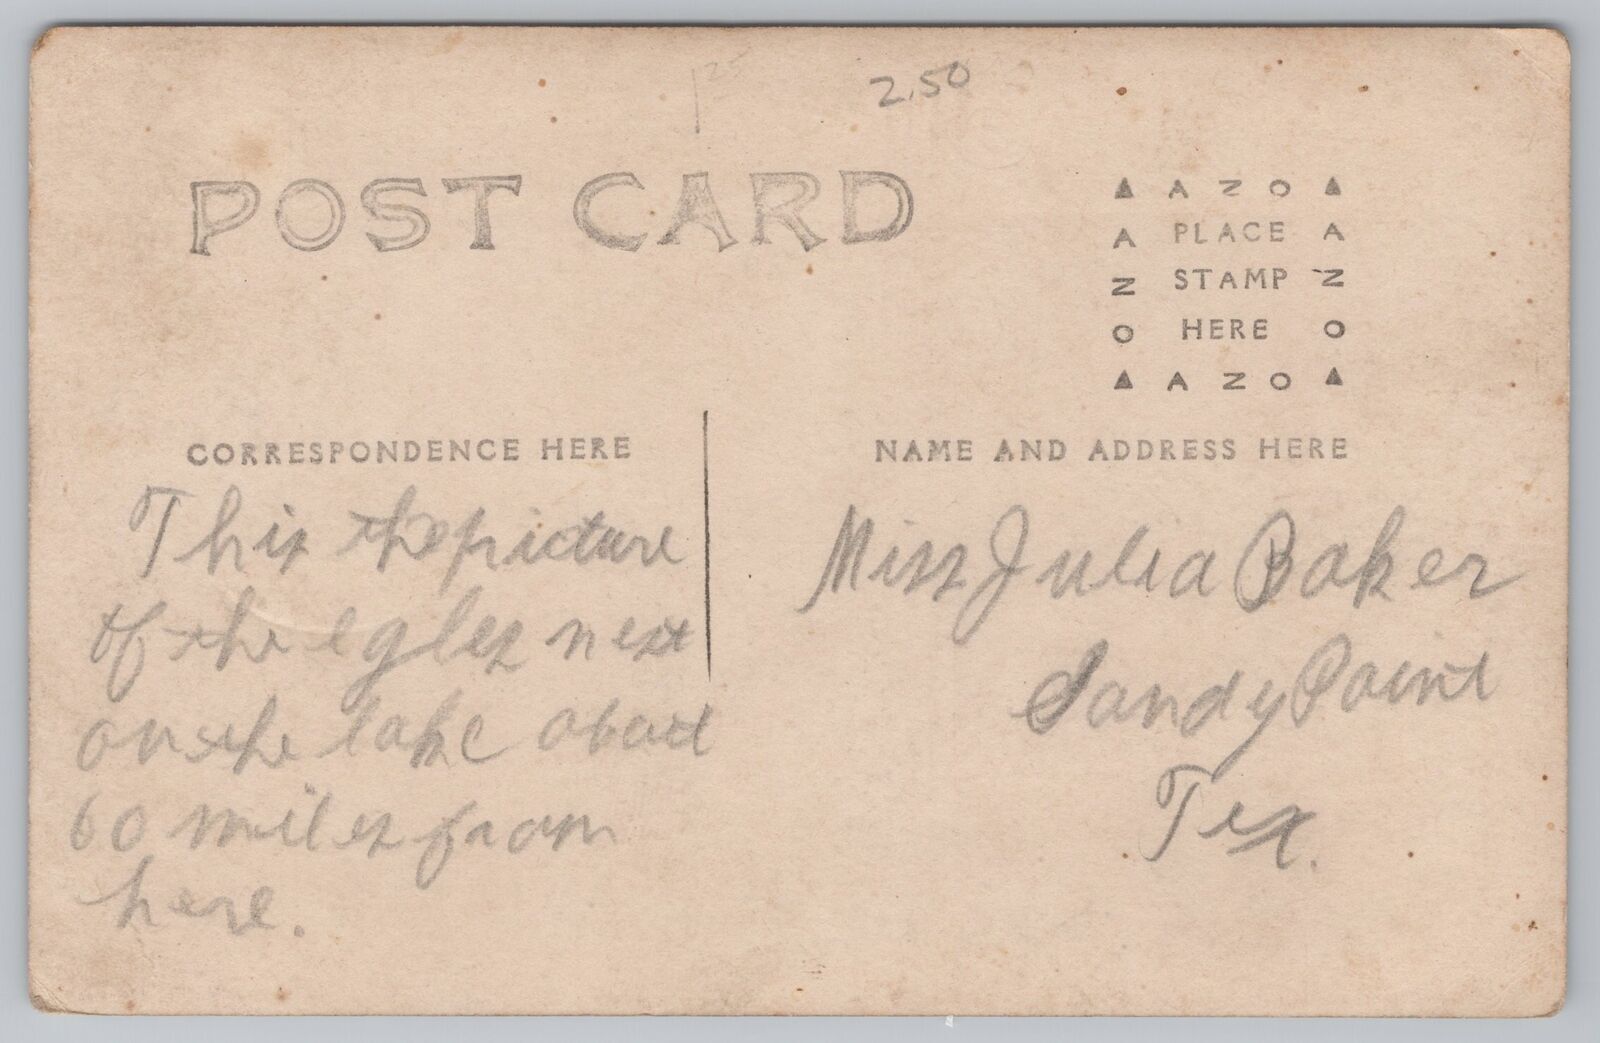 1 25
2.50
POST CARD
▲ A Z O ▲
A PLACE A
N STAMP N
Z HERE Z
O O
▲ A Z O ▲
CORRESPONDENCE HERE
NAME AND ADDRESS HERE
This the picture
of the egles nest
on the lake about
60 miles from
here.
Miss Julia Baker
Sandy Point
Tex.